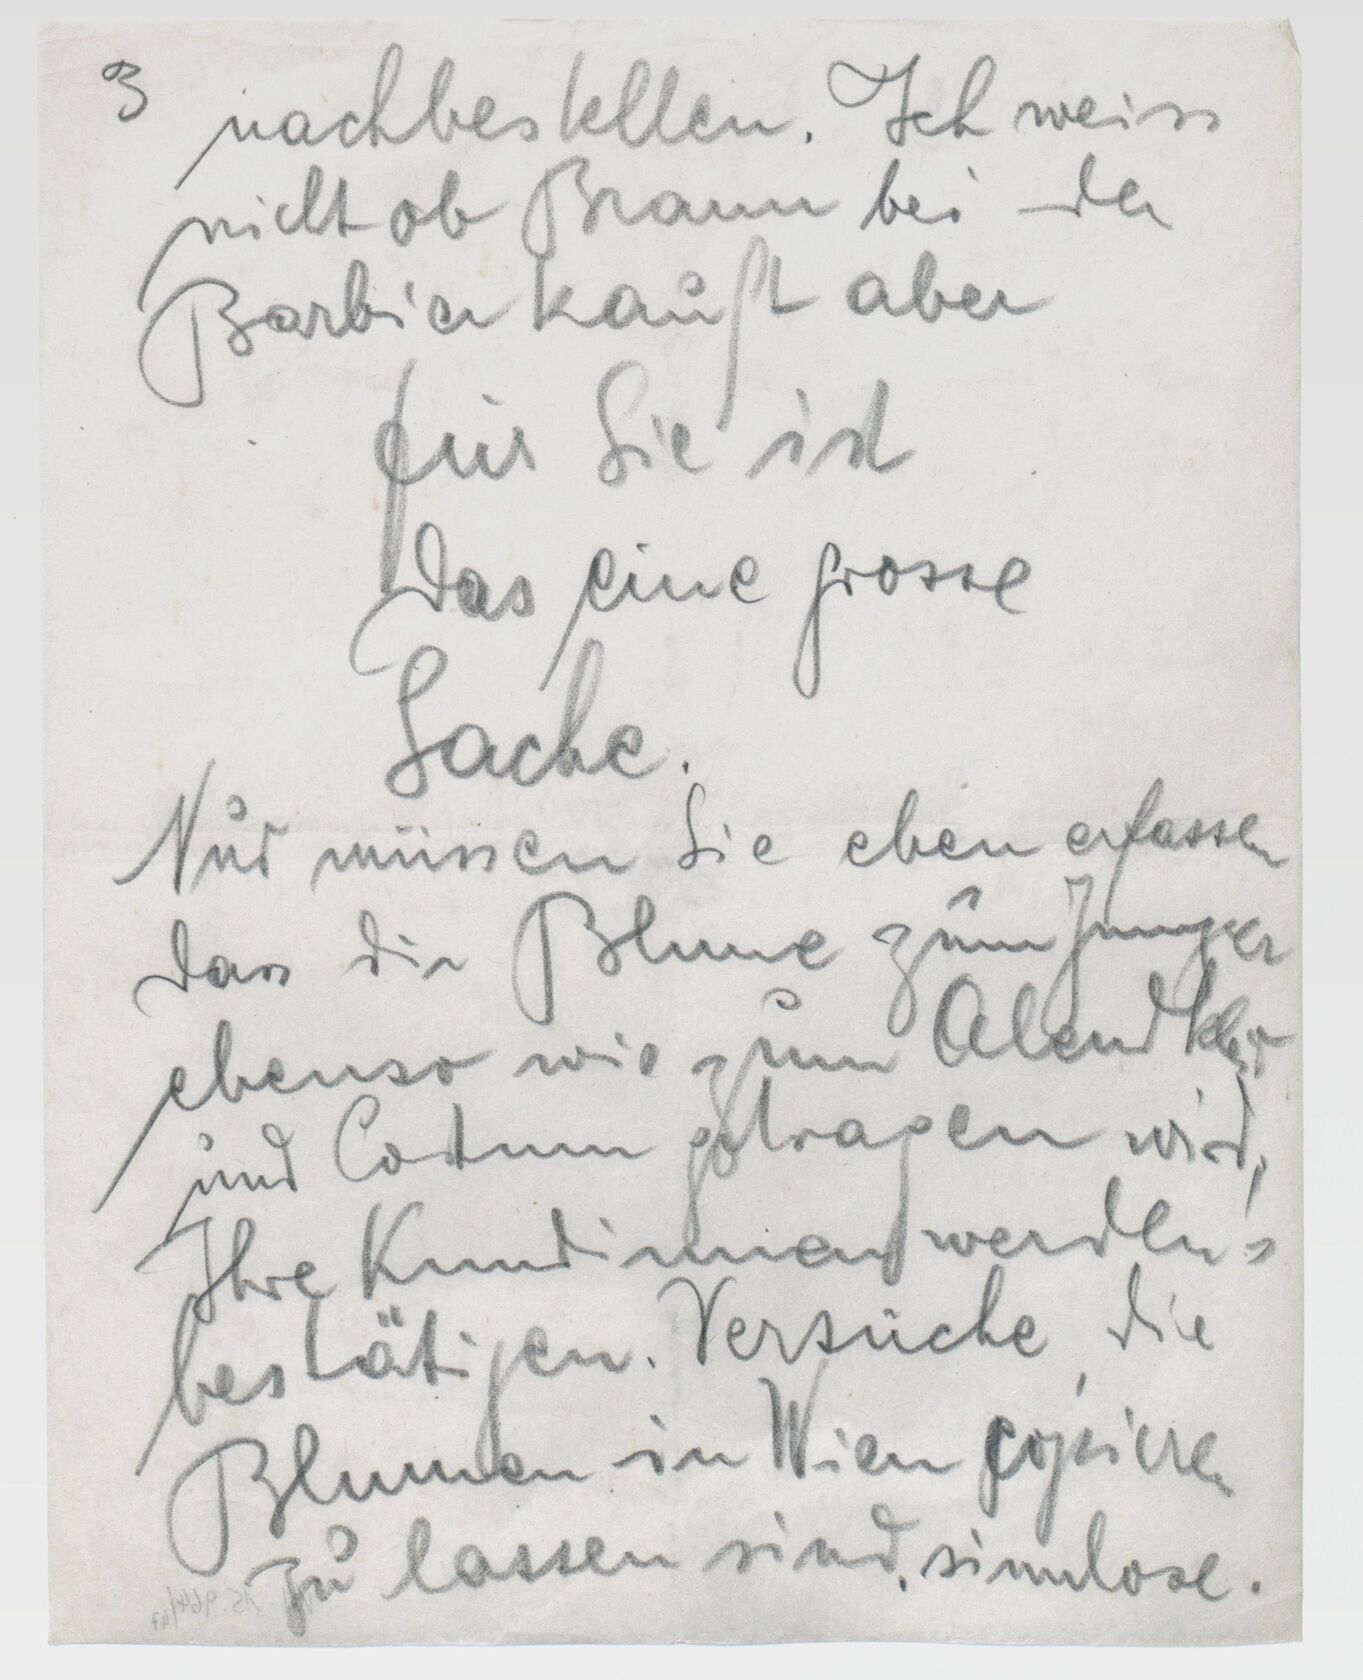 3 nachbestellen. Ich weiss
nicht ob Braun bei der
Barbier kauft aber
für Sie ist
das eine grosse
Sache.
Nur müssen Sie eben erfassen
dass die Blume zum Jumper
ebenso wie zum Abendkleid
und Costum getragen wird,
Ihre Kundinnen werden's
bestätigen. Versuche, die
Blumen in Wien copieren
zu lassen sind, sinnlose.
15.964/47